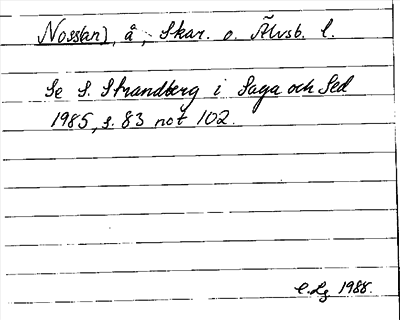 Nossan), å, Skar. o. Älvsb. l.
Se S. Strandberg i Saga och Sed
1985, s. 83 not 102.
1988.